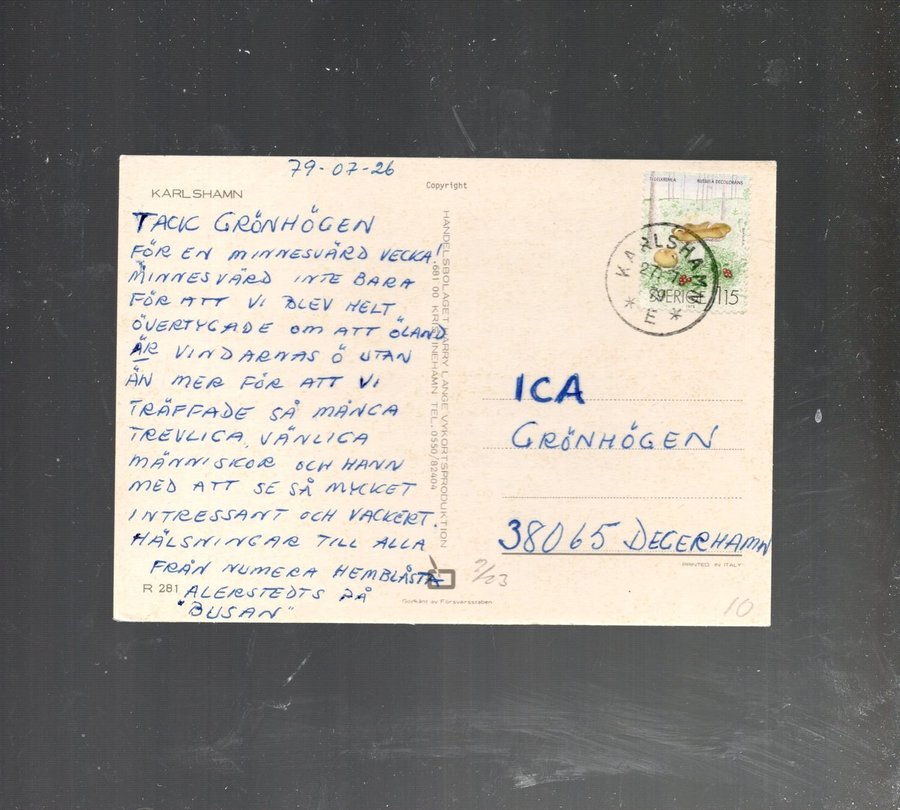 79-07-26
KARLSHAMN
TACK GRÖNHÖGEN
FÖR EN MINNESVÄRD VECKA!
MINNESVÄRD INTE BARA
FÖR ATT VI BLEV HELT
ÖVERTYGADE OM ATT ÖLAND
ÄR VINDARNAS Ö UTAN
ÄN MER FÖR ATT VI
TRÄFFADE SÅ MÅNGA
TREVLIGA, VÄNLIGA
MÄNNISKOR OCH HANN
MED ATT SE SÅ MYCKET
INTRESSANT OCH VACKERT.
HÄLSNINGAR TILL ALLA
FRÅN NUMERA HEMBLÅSTA
R 281
ALERSTEDTS PÅ
"BUSAN"
Copyright
HANDELSBOLAGET HARRY LANGE VYKORTSPRODUKTION
681 00 KRISTINEHAMN TEL. 0550/82404
Godkänt av Försvarsstaben
RUSSULA DECOLORANS
SVERIGE 115
KARLSHAMN
27-7
79
* E *
ICA
GRÖNHÖGEN
38065 DEGERHAMN
PRINTED IN ITALY
10